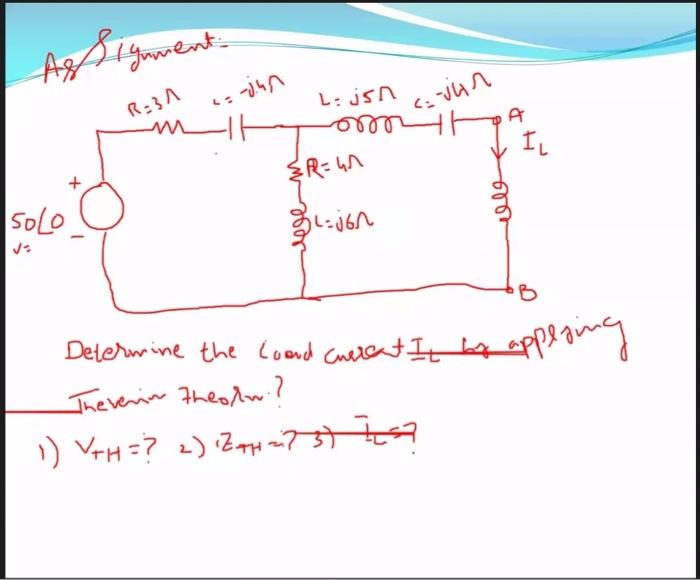 Assignment:-
R=3Ω
-j4Ω
L=j5Ω
C=-j4Ω
A
I_L
+
R=4Ω
50∠0
V=
-
L=j6Ω
B
Determine the Load current I_L by applying
Thevenin Theorem?
1) V_TH=? 2) Z_TH=? 3) I_L=?